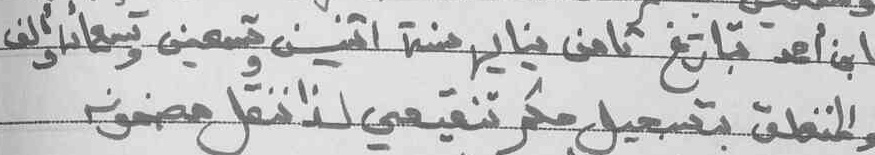 ابن أحمد بتاريخ ثامن يناير سنة اثنين وتسعين وتسعمائة وألف
والمتعلق بتسجيل حكم تنقيحي لذا ننقل مضمونه